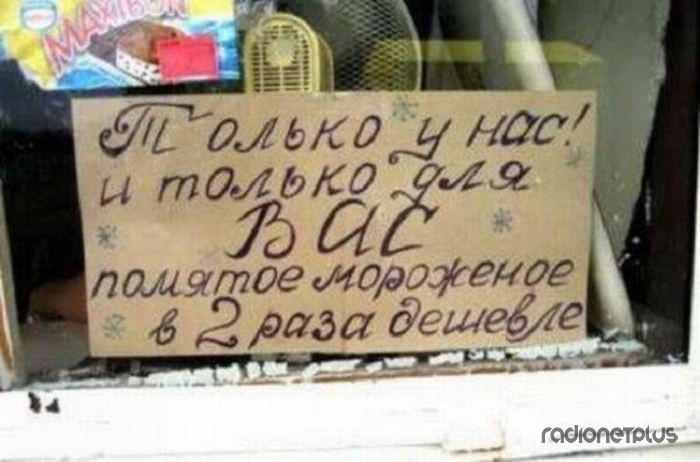 MAXIBON
Только у нас!
и только для
ВАС
помятое мороженое
в 2 раза дешевле
radionetplus